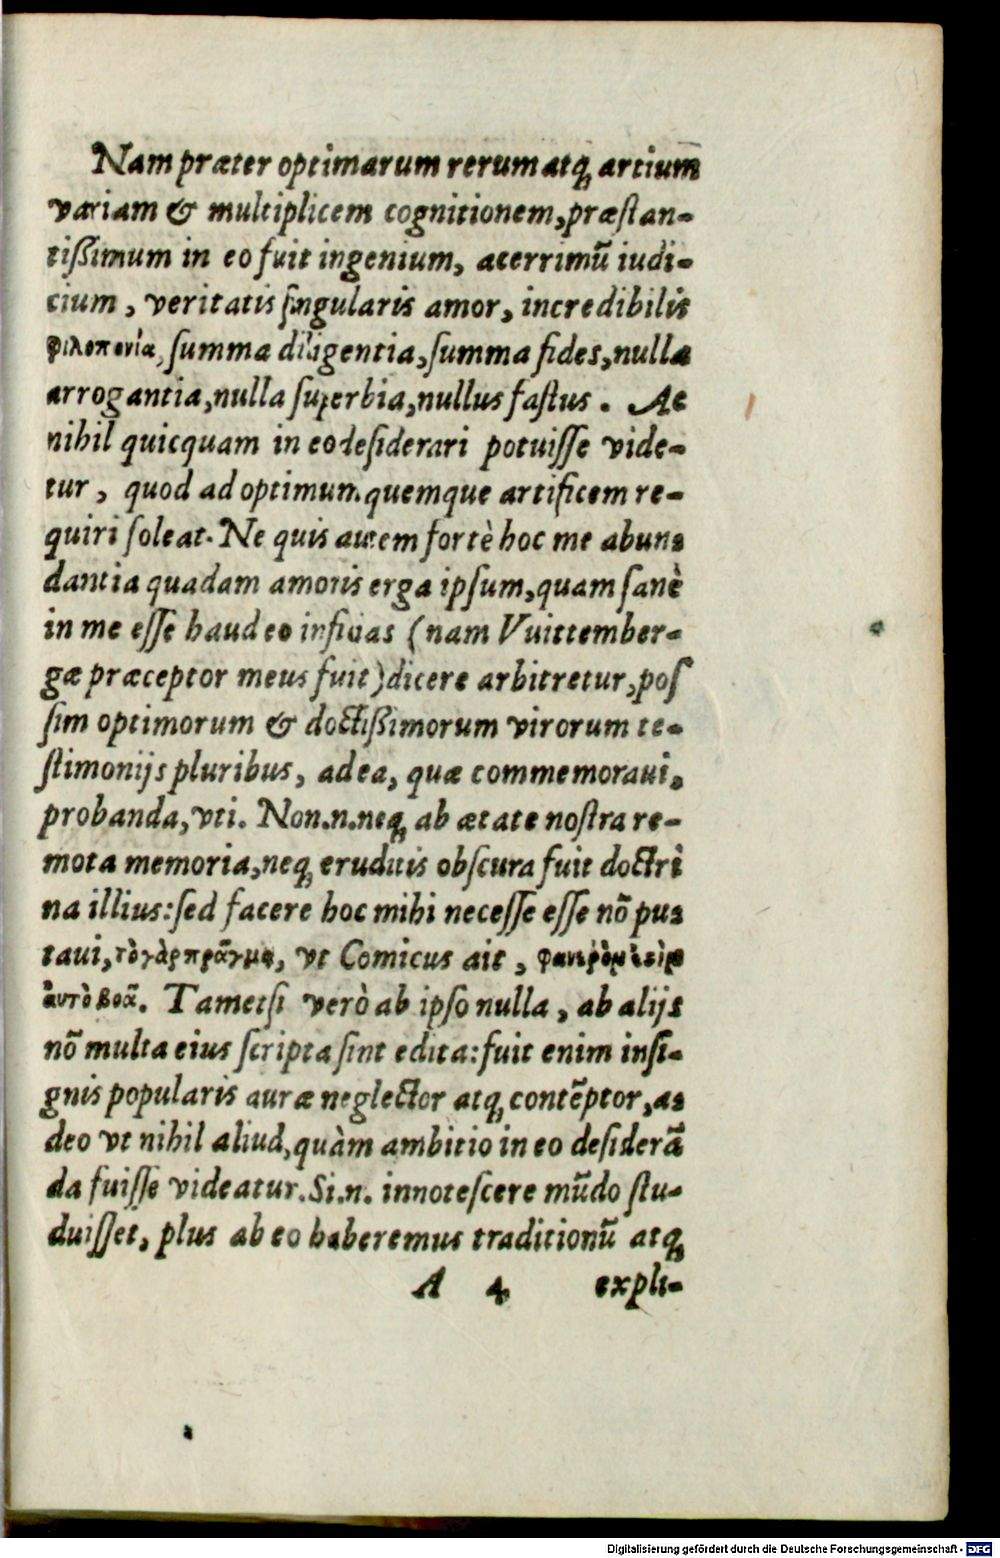 Nam præter optimarum rerum atq; artium
variam & multiplicem cognitionem, præstan-
tißimum in eo fuit ingenium, acerrimũ iudi-
cium, veritatis singularis amor, incredibilis
φιλοπονία, summa diligentia, summa fides, nulla
arrogantia, nulla superbia, nullus fastus. Ac
nihil quicquam in eo desiderari potuisse vide-
tur, quod ad optimum quemque artificem re-
quiri soleat. Ne quis autem fortè hoc me abun-
dantia quadam amoris erga ipsum, quam sanè
in me esse haud eo inficias (nam Vuittember-
gæ præceptor meus fuit) dicere arbitretur, pos
sim optimorum & doctißimorum virorum te-
stimonijs pluribus, ad ea, quæ commemoraui,
probanda, vti. Non.n.neq; ab ætate nostra re-
mota memoria, neq; eruditis obscura fuit doctri
na illius: sed facere hoc mihi necesse esse nõ pu-
taui, τὸ γὰρ πρᾶγμα, vt Comicus ait,
αυτὸ βοᾶ. Tametsi verò ab ipso nulla, ab alijs
nõ multa eius scripta sint edita: fuit enim insi-
gnis popularis auræ neglector atq; contẽptor, a-
deo vt nihil aliud, quàm ambitio in eo desiderã
da fuisse videatur. Si.n. innotescere mũdo stu-
duisset, plus ab eo haberemus traditionũ atq;
A 4 expli-
Digitalisierung gefördert durch die Deutsche Forschungsgemeinschaft - DFG